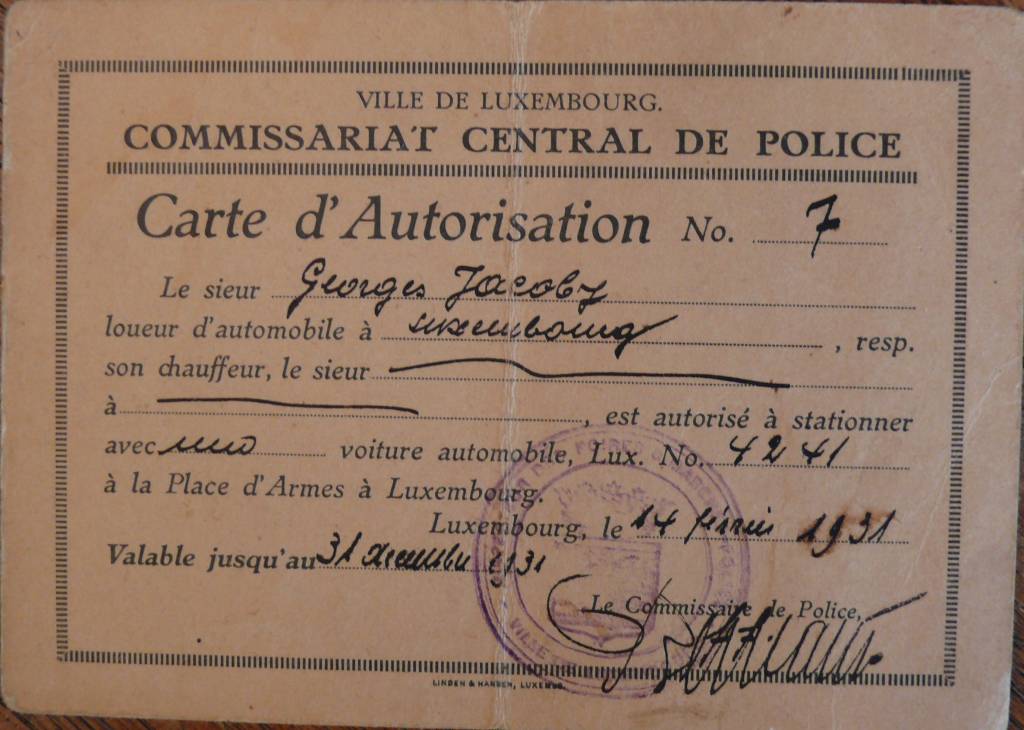 VILLE DE LUXEMBOURG.
COMMISSARIAT CENTRAL DE POLICE
Carte d'Autorisation No. 7
Le sieur Georges Jacoby
loueur d'automobile à Luxembourg, resp.
son chauffeur, le sieur
à, est autorisé à stationner
avec une voiture automobile, Lux. No. 4241
à la Place d'Armes à Luxembourg.
Luxembourg, le 14 février 1931
Valable jusqu'au 31 decembre 1931
Le Commissaire de Police,
LINDEN & HANSEN, LUXEMBG.